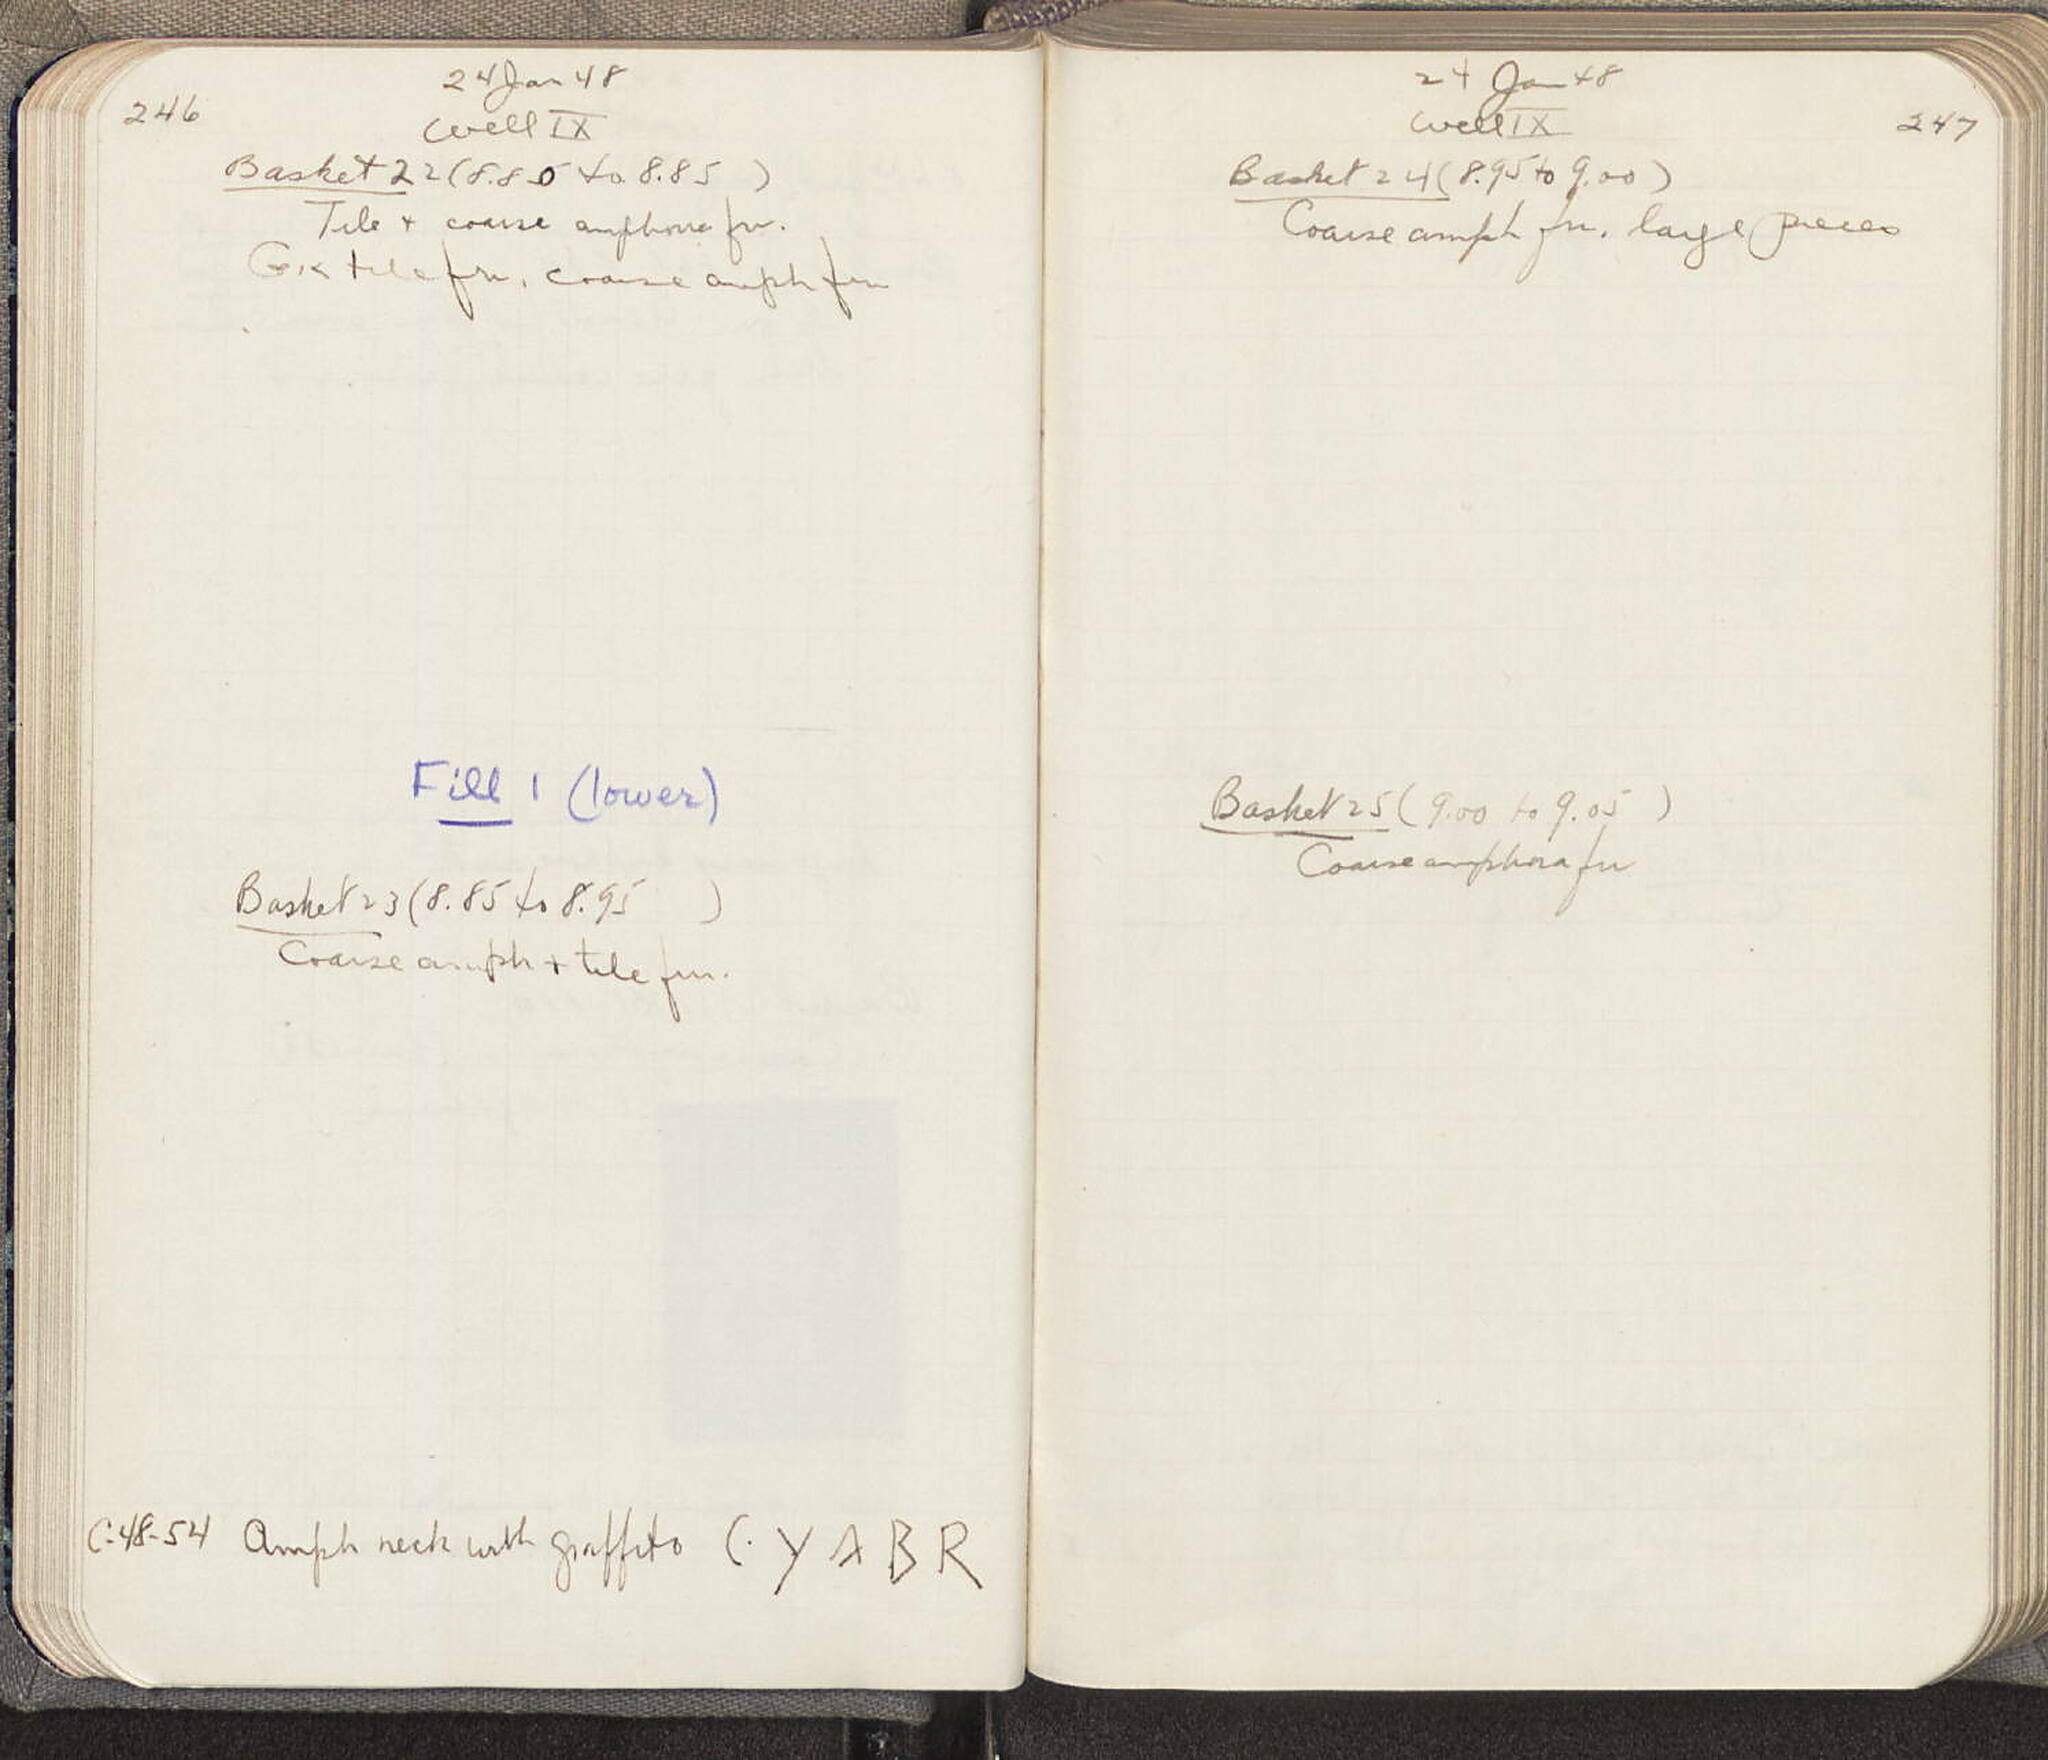 246
24 Jan 48
Well IX
Basket 22 (8.80 to 8.85 )
Tile + coarse amphora fr.
Gk tile fr., coarse amph fr
Fill 1 (lower)
Basket 23 (8.85 to 8.95 )
Coarse amph + tile fr.
C-48-54 Amph neck with graffito C. Y A B R
24 Jan 48
247
Well IX
Basket 24 (8.95 to 9.00)
Coarse amph fr. large pieces
Basket 25 ( 9.00 to 9.05 )
Coarse amphora fr